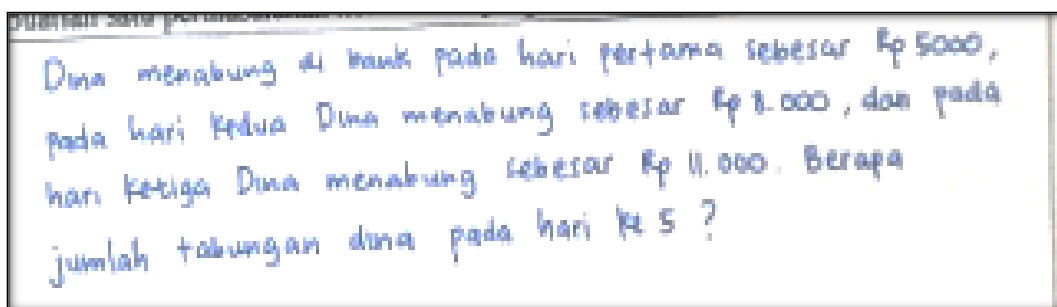 Dina menabung di bank pada hari pertama sebesar Rp 5000,
pada hari kedua Dina menabung sebesar Rp 8.000, dan pada
hari ketiga Dina menabung sebesar Rp 11.000. Berapa
jumlah tabungan dina pada hari ke 5 ?